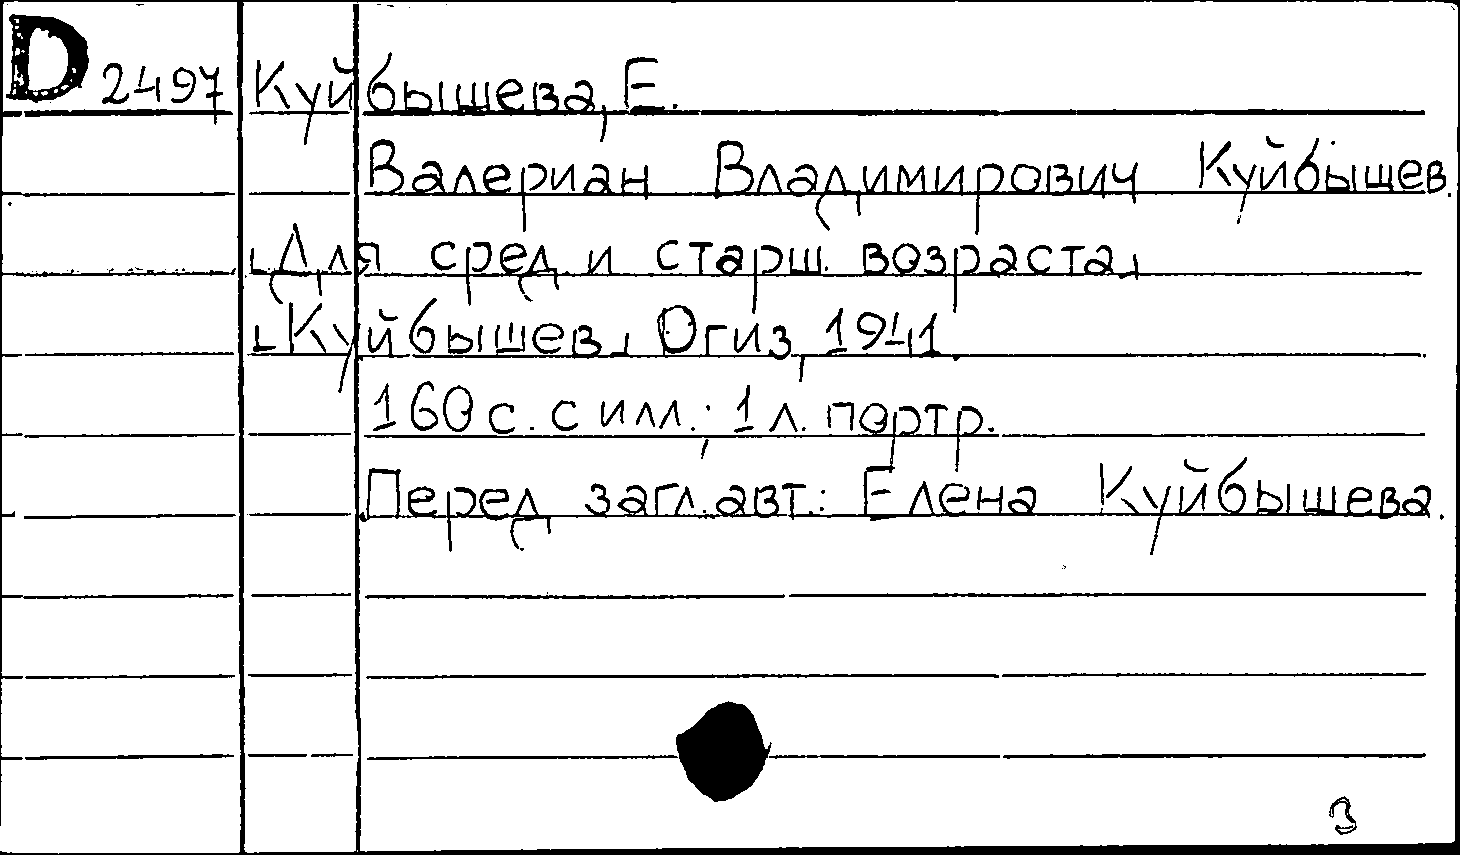 D 2497 Куйбышева, Е.
Валериан Владимирович Куйбышев.
[Для сред. и старш. возраста]
[Куйбышев] Огиз, 1941.
160 с. с илл.; 1 л. портр.
Перед загл. авт.: Елена Куйбышева.
3